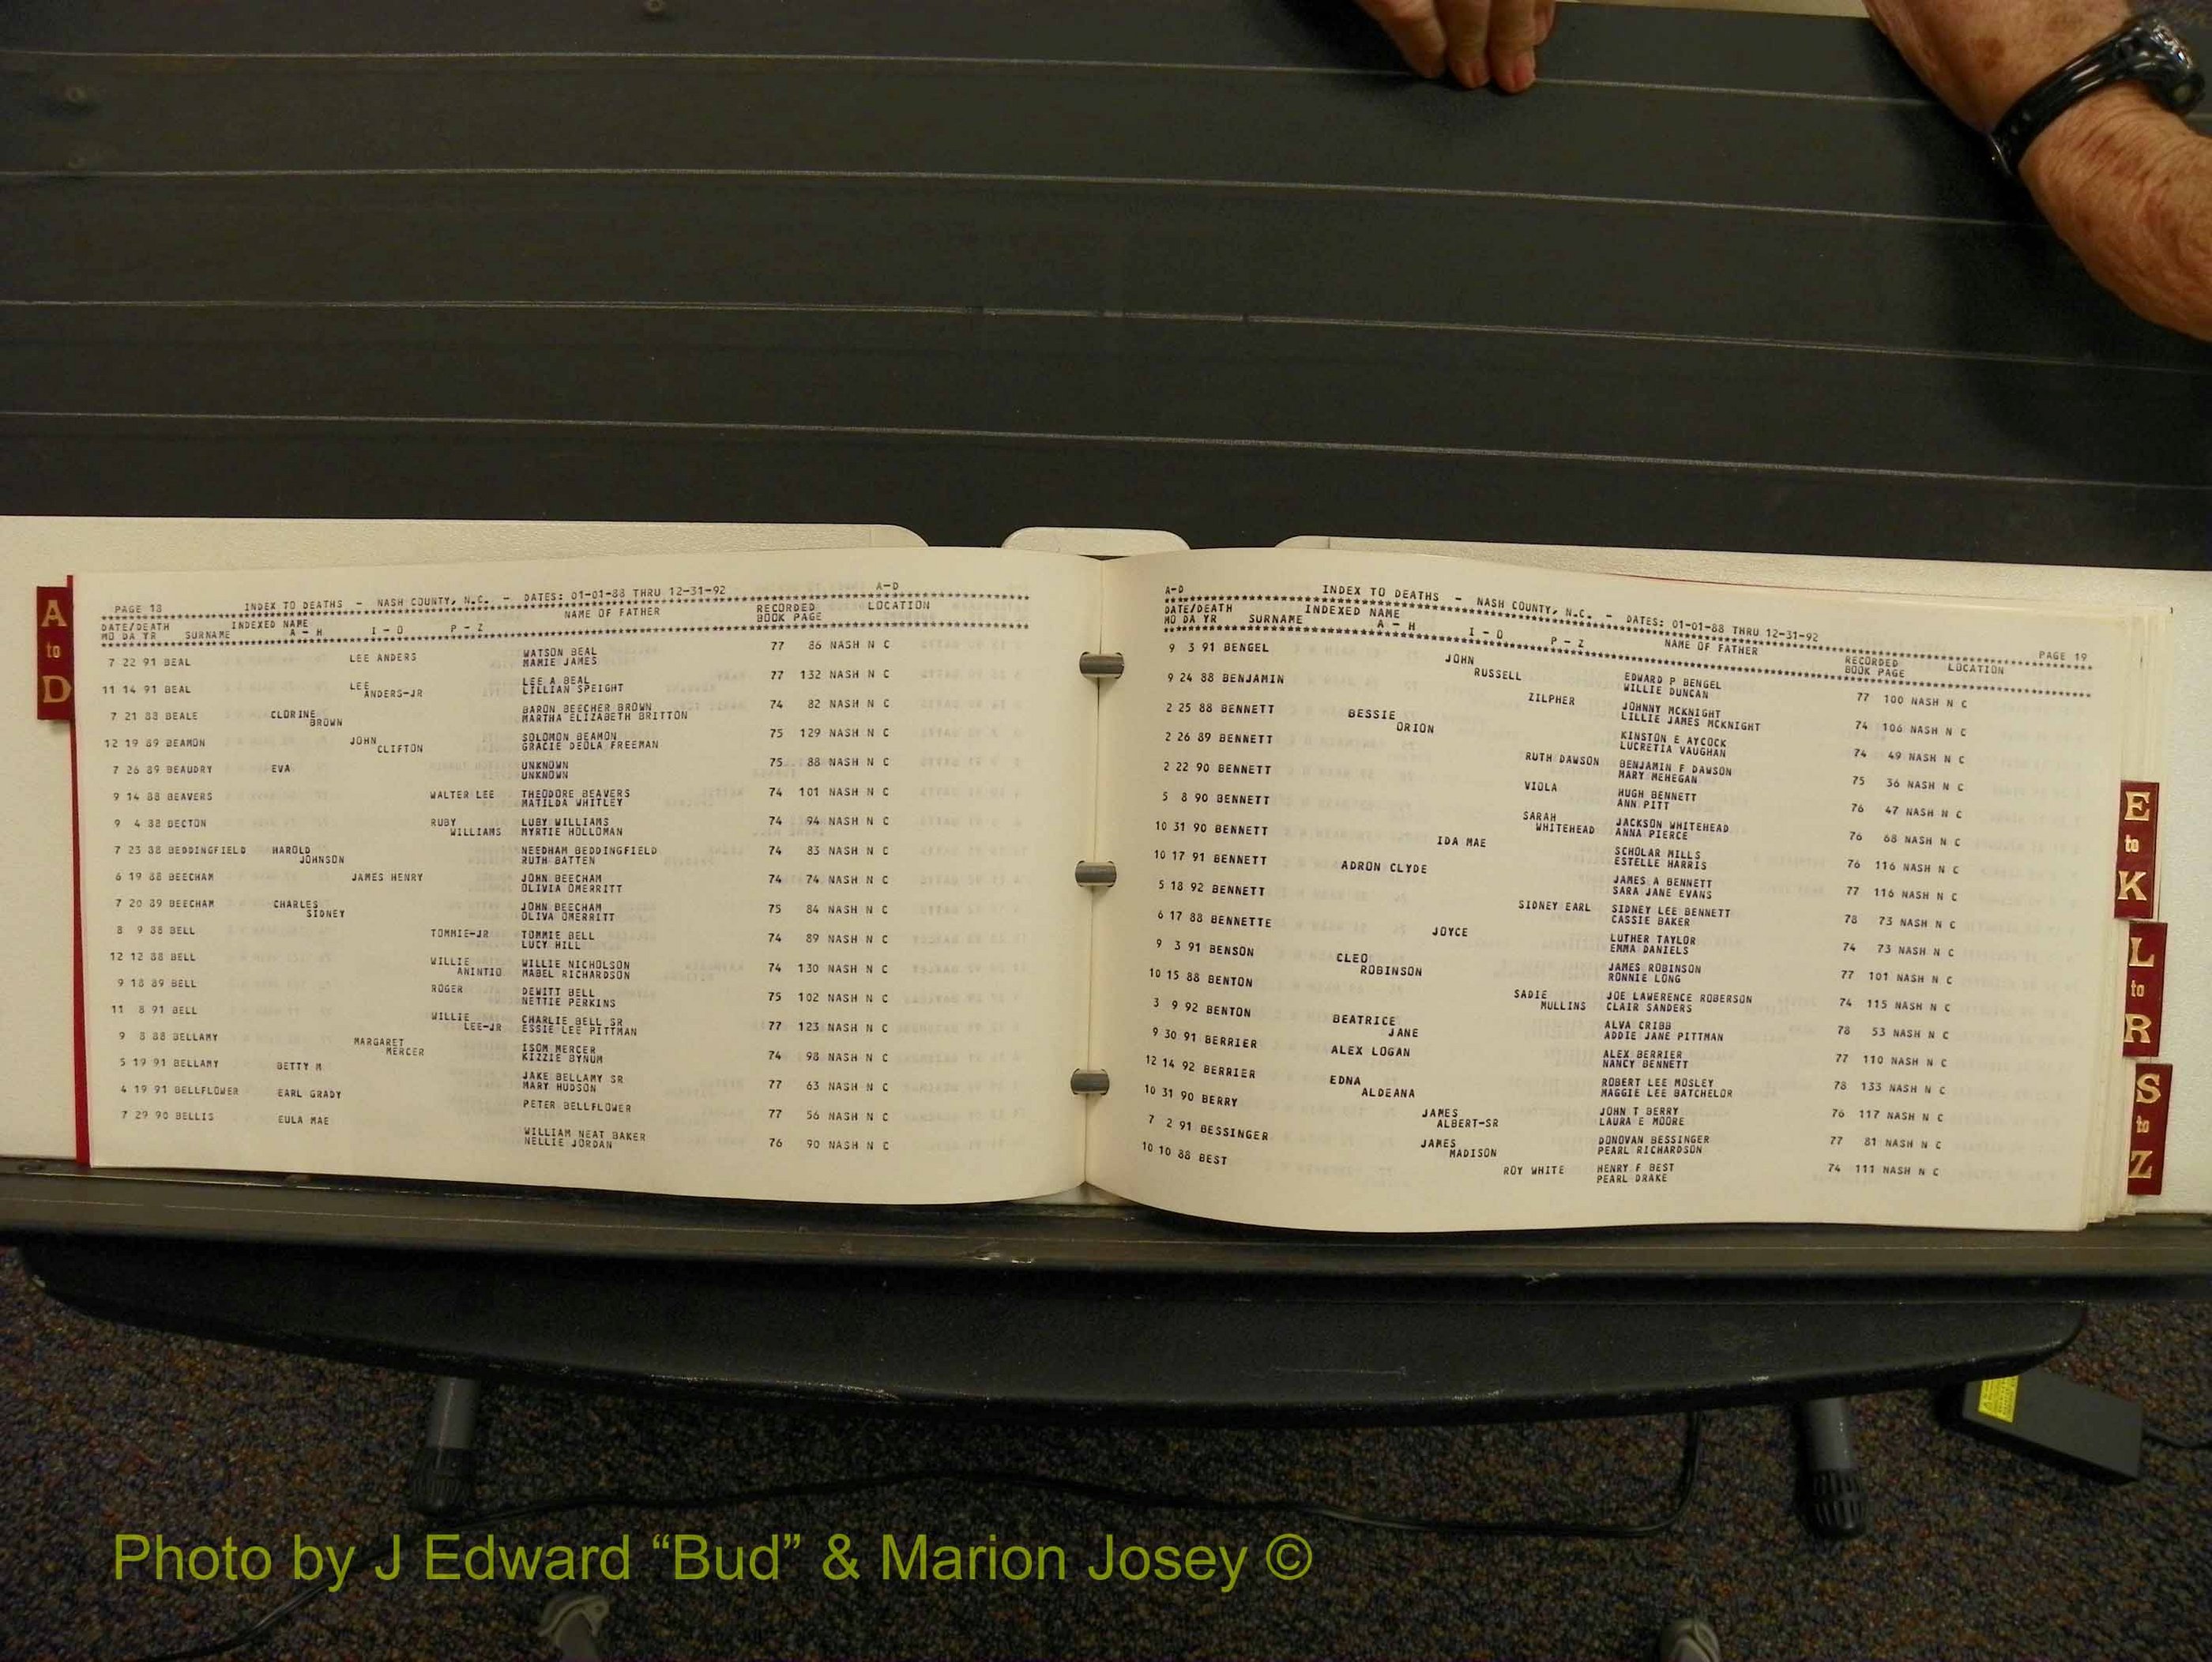 A to D
PAGE 18 INDEX TO DEATHS - NASH COUNTY, N.C. - DATES: 01-01-88 THRU 12-31-92 A-D
DATE/DEATH INDEXED NAME NAME OF FATHER RECORDED LOCATION
MO DA YR SURNAME A - H I - O P - Z BOOK PAGE
7 22 91 BEAL LEE ANDERS WATSON BEAL 77 86 NASH N C
MAMIE JAMES
11 14 91 BEAL LEE LEE A BEAL 77 132 NASH N C
ANDERS-JR LILLIAN SPEIGHT
7 21 88 BEALE CLORINE BARON BEECHER BROWN 74 82 NASH N C
BROWN MARTHA ELIZABETH BRITTON
12 19 89 BEAMON JOHN SOLOMON BEAMON 75 129 NASH N C
CLIFTON GRACIE DEOLA FREEMAN
7 26 89 BEAUDRY EVA UNKNOWN 75 88 NASH N C
UNKNOWN
9 14 88 BEAVERS WALTER LEE THEODORE BEAVERS 74 101 NASH N C
MATILDA WHITLEY
9 4 88 BECTON RUBY LUBY WILLIAMS 74 94 NASH N C
WILLIAMS MYRTIE HOLLOMAN
7 23 88 BEDDINGFIELD HAROLD NEEDHAM BEDDINGFIELD 74 83 NASH N C
JOHNSON RUTH BATTEN
6 19 88 BEECHAM JAMES HENRY JOHN BEECHAM 74 74 NASH N C
OLIVIA OMERRITT
7 20 89 BEECHAM CHARLES JOHN BEECHAM 75 84 NASH N C
SIDNEY OLIVA OMERRITT
8 9 88 BELL TOMMIE-JR TOMMIE BELL 74 89 NASH N C
LUCY HILL
12 12 88 BELL WILLIE WILLIE NICHOLSON 74 130 NASH N C
ANINTIO MABEL RICHARDSON
9 18 89 BELL ROGER DEWITT BELL 75 102 NASH N C
NETTIE PERKINS
11 8 91 BELL WILLIE CHARLIE BELL SR 77 123 NASH N C
LEE-JR ESSIE LEE PITTMAN
9 8 88 BELLAMY MARGARET ISOM MERCER 74 98 NASH N C
MERCER KIZZIE BYNUM
5 19 91 BELLAMY BETTY M JAKE BELLAMY SR 77 63 NASH N C
MARY HUDSON
4 19 91 BELLFLOWER EARL GRADY PETER BELLFLOWER 77 56 NASH N C
7 29 90 BELLIS EULA MAE WILLIAM NEAT BAKER 76 90 NASH N C
NELLIE JORDAN
A-D INDEX TO DEATHS - NASH COUNTY, N.C. - DATES: 01-01-88 THRU 12-31-92 PAGE 19
DATE/DEATH INDEXED NAME NAME OF FATHER RECORDED LOCATION
MO DA YR SURNAME A - H I - O P - Z BOOK PAGE
9 3 91 BENGEL JOHN EDWARD P BENGEL 77 100 NASH N C
RUSSELL WILLIE DUNCAN
9 24 88 BENJAMIN ZILPHER JOHNNY MCKNIGHT 74 106 NASH N C
LILLIE JAMES MCKNIGHT
2 25 88 BENNETT BESSIE KINSTON E AYCOCK 74 49 NASH N C
ORION LUCRETIA VAUGHAN
2 26 89 BENNETT RUTH DAWSON BENJAMIN F DAWSON 75 36 NASH N C
MARY MEHEGAN
2 22 90 BENNETT VIOLA HUGH BENNETT 76 47 NASH N C
ANN PITT
5 8 90 BENNETT SARAH JACKSON WHITEHEAD 76 68 NASH N C
WHITEHEAD ANNA PIERCE
10 31 90 BENNETT IDA MAE SCHOLAR MILLS 76 116 NASH N C
ESTELLE HARRIS
10 17 91 BENNETT ADRON CLYDE JAMES A BENNETT 77 116 NASH N C
SARA JANE EVANS
5 18 92 BENNETT SIDNEY EARL SIDNEY LEE BENNETT 78 73 NASH N C
CASSIE BAKER
6 17 88 BENNETTE JOYCE LUTHER TAYLOR 74 73 NASH N C
EMMA DANIELS
9 3 91 BENSON CLEO JAMES ROBINSON 77 101 NASH N C
ROBINSON RONNIE LONG
10 15 88 BENTON SADIE JOE LAWERENCE ROBERSON 74 115 NASH N C
MULLINS CLAIR SANDERS
3 9 92 BENTON BEATRICE ALVA CRIBB 78 53 NASH N C
JANE ADDIE JANE PITTMAN
9 30 91 BERRIER ALEX LOGAN ALEX BERRIER 77 110 NASH N C
NANCY BENNETT
12 14 92 BERRIER EDNA ROBERT LEE MOSLEY 78 133 NASH N C
ALDEANA MAGGIE LEE BATCHELOR
10 31 90 BERRY JAMES JOHN T BERRY 76 117 NASH N C
ALBERT-SR LAURA E MOORE
7 2 91 BESSINGER JAMES DONOVAN BESSINGER 77 81 NASH N C
MADISON PEARL RICHARDSON
10 10 88 BEST ROY WHITE HENRY F BEST 74 111 NASH N C
PEARL DRAKE
E to K
L to R
S to Z
Photo by J Edward “Bud” & Marion Josey ©